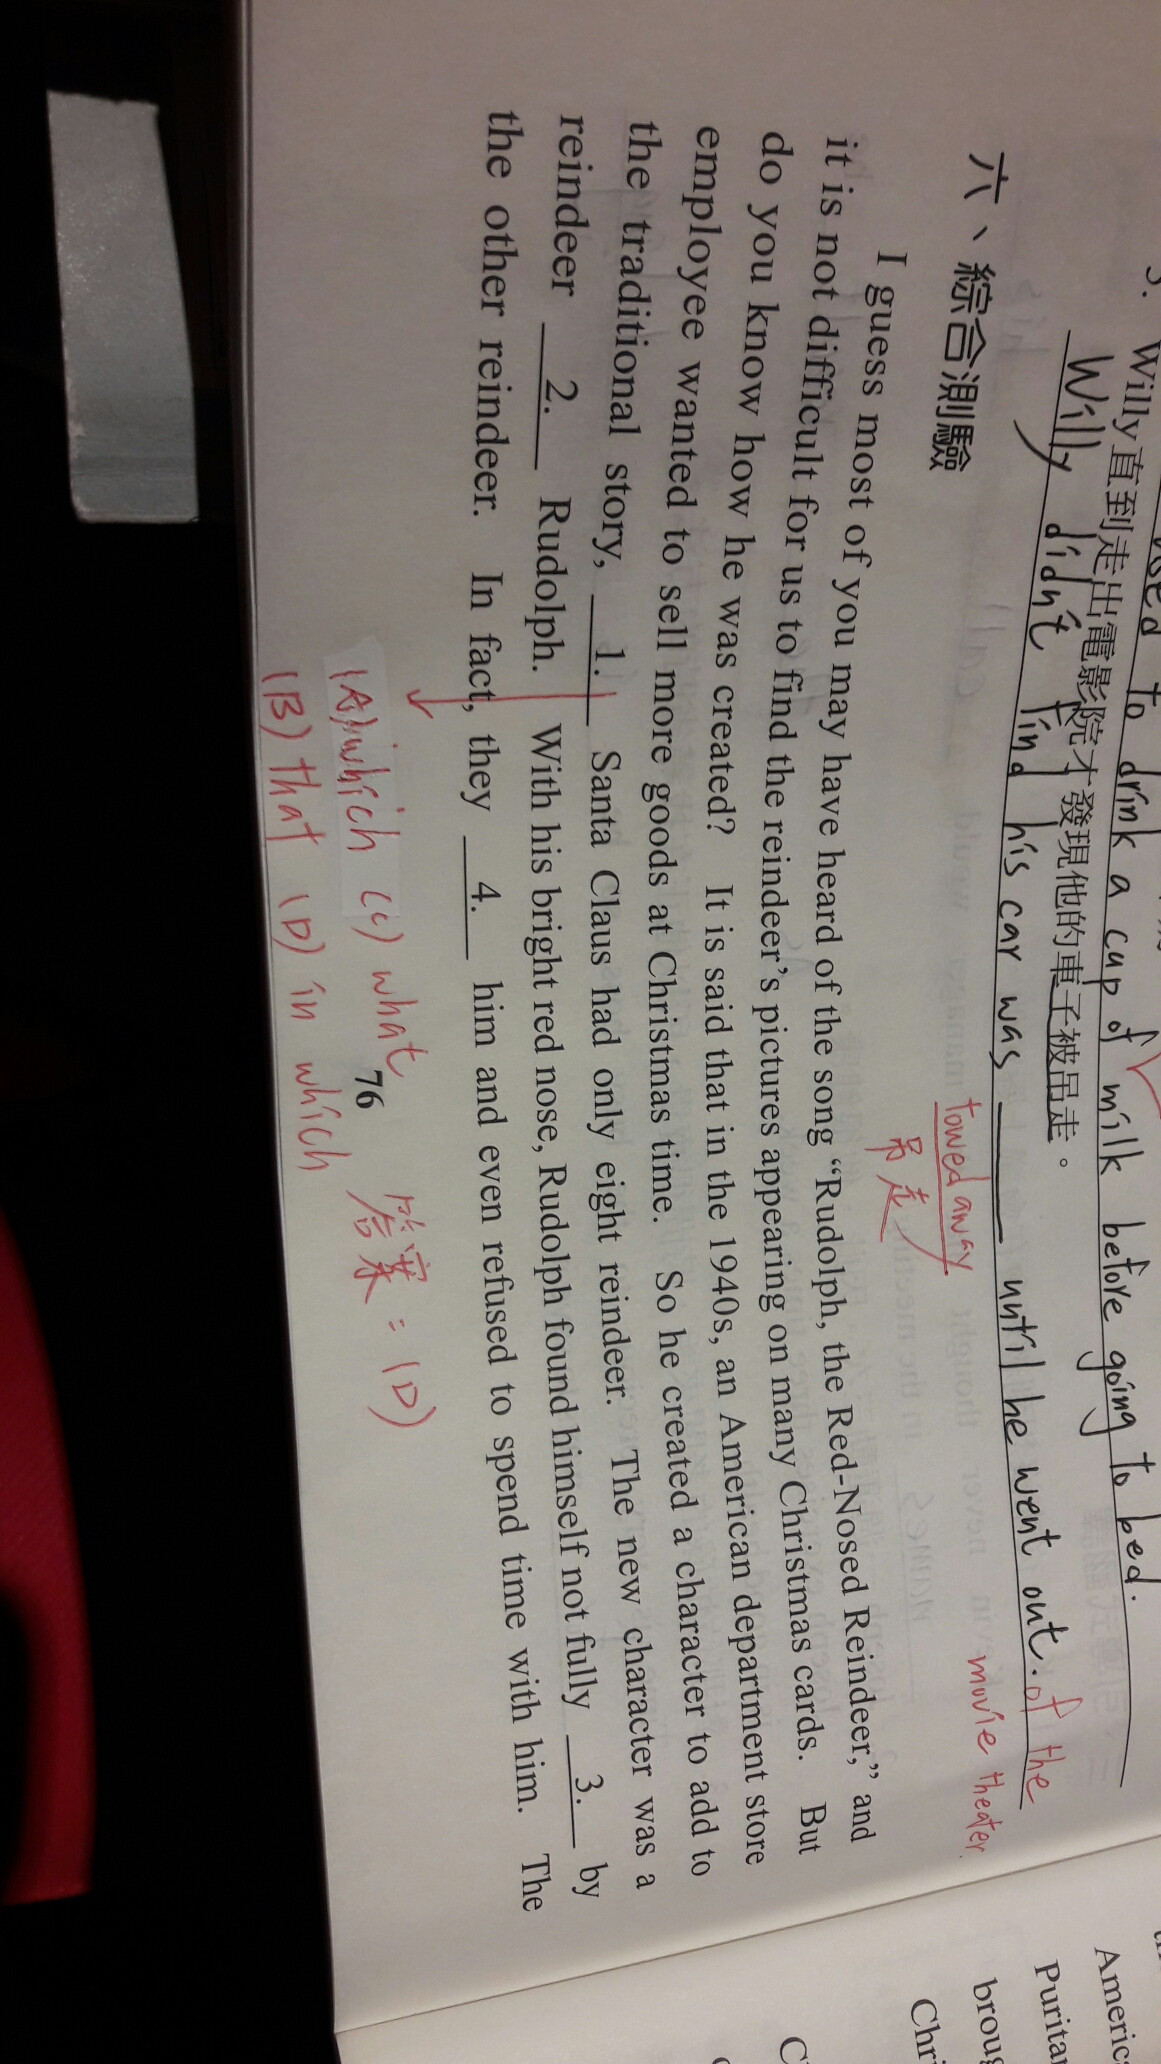 used to drink a cup of milk before going to bed.
3. Willy直到走出電影院才發現他的車子被吊走。
Willy didn't find his car was ____ until he went out. of the
towed away
吊走
movie theater
六、綜合測驗
I guess most of you may have heard of the song “Rudolph, the Red-Nosed Reindeer,” and
it is not difficult for us to find the reindeer’s pictures appearing on many Christmas cards. But
do you know how he was created? It is said that in the 1940s, an American department store
employee wanted to sell more goods at Christmas time. So he created a character to add to
the traditional story, 1. Santa Claus had only eight reindeer. The new character was a
reindeer 2. Rudolph. With his bright red nose, Rudolph found himself not fully 3. by
the other reindeer. In fact, they 4. him and even refused to spend time with him. The
(A) which (C) what
(B) that (D) in which
答案=(D)
76
Americ
Purita
broug
Chri